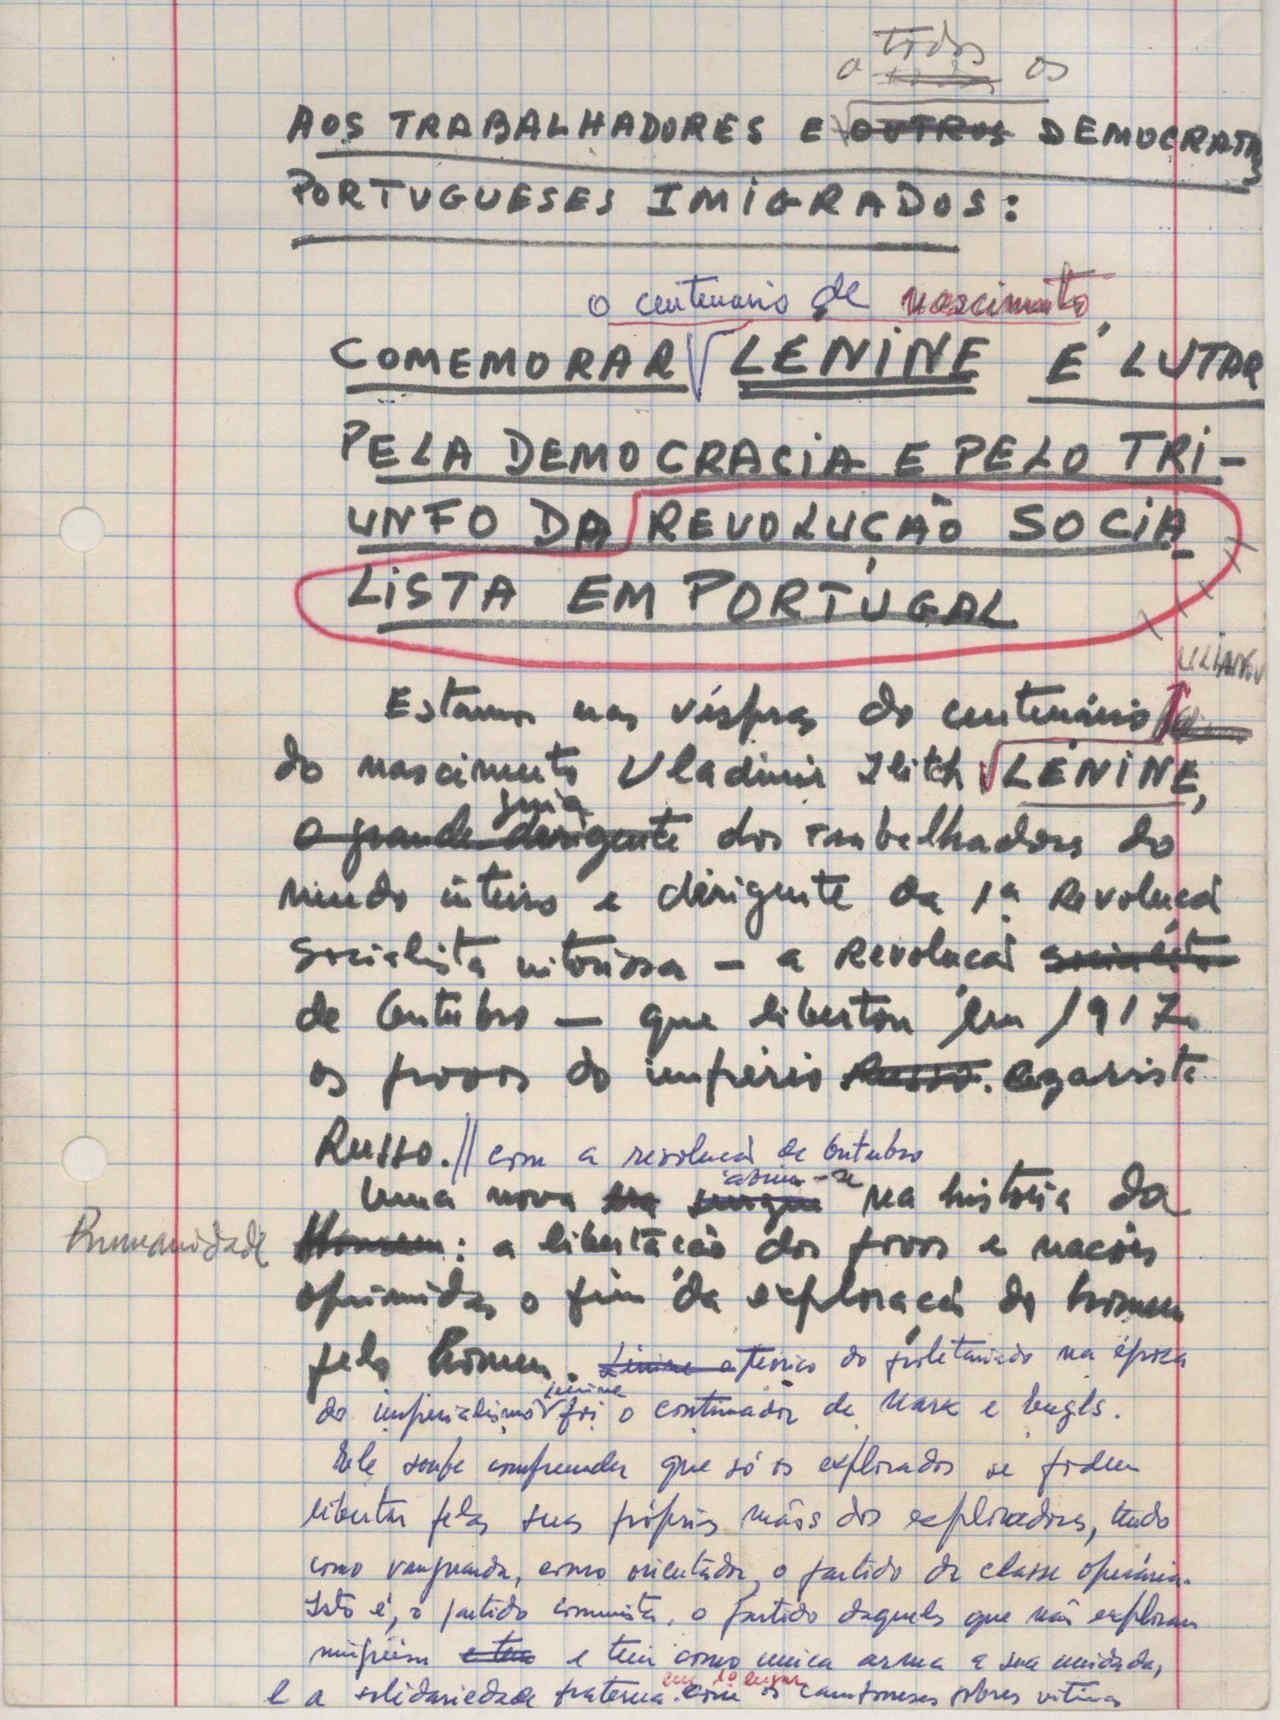 a todos os
AOS TRABALHADORES E OUTROS DEMOCRATAS
PORTUGUESES IMIGRADOS:
o centenario de nascimento
COMEMORAR LENINE É LUTAR
PELA DEMOCRACIA E PELO TRI-
UNFO DA REVOLUÇÃO SOCIA
LISTA EM PORTUGAL
ULIANOV
Estamos nas vésperas do centenário
do nascimento Vladimir Ilitch LENINE,
guia
o grande dirigente dos trabalhadores do
mundo inteiro e dirigente da 1ª Revolução
socialista vitoriosa - a Revolução socialista
de Outubro - que libertou em 1917
os povos do império Russo. czarista
Russo. // com a revolução de Outubro
abriu-se
Uma nova era na história da
Humanidade Homem: a libertação dos povos e nações
oprimidas o fim da exploração do homem
pelo homem. Lénine o teorico do proletariado na época
lenine
do imperialismo foi o continuador de Marx e Engels.
Ele soube compreender que só os explorados se podem
libertar pelas suas próprias mãos dos exploradores, tendo
como vanguarda, como orientador, o partido da classe operária.
Isto é, o partido comunista, o partido daqueles que não exploram
ninguém e tem e tem como unica arma a sua unidade,
e a solidariedade fraterna. com os camponeses pobres vitimas